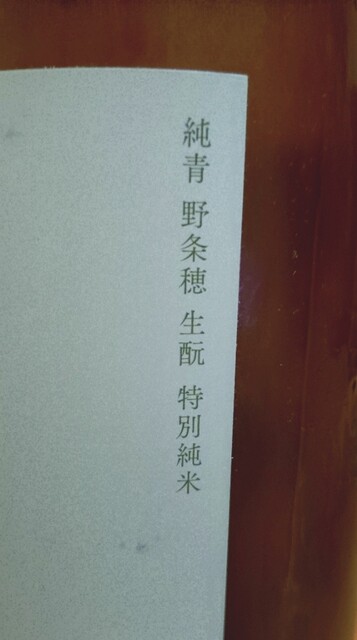 純青 野条穂 生酛 特別純米